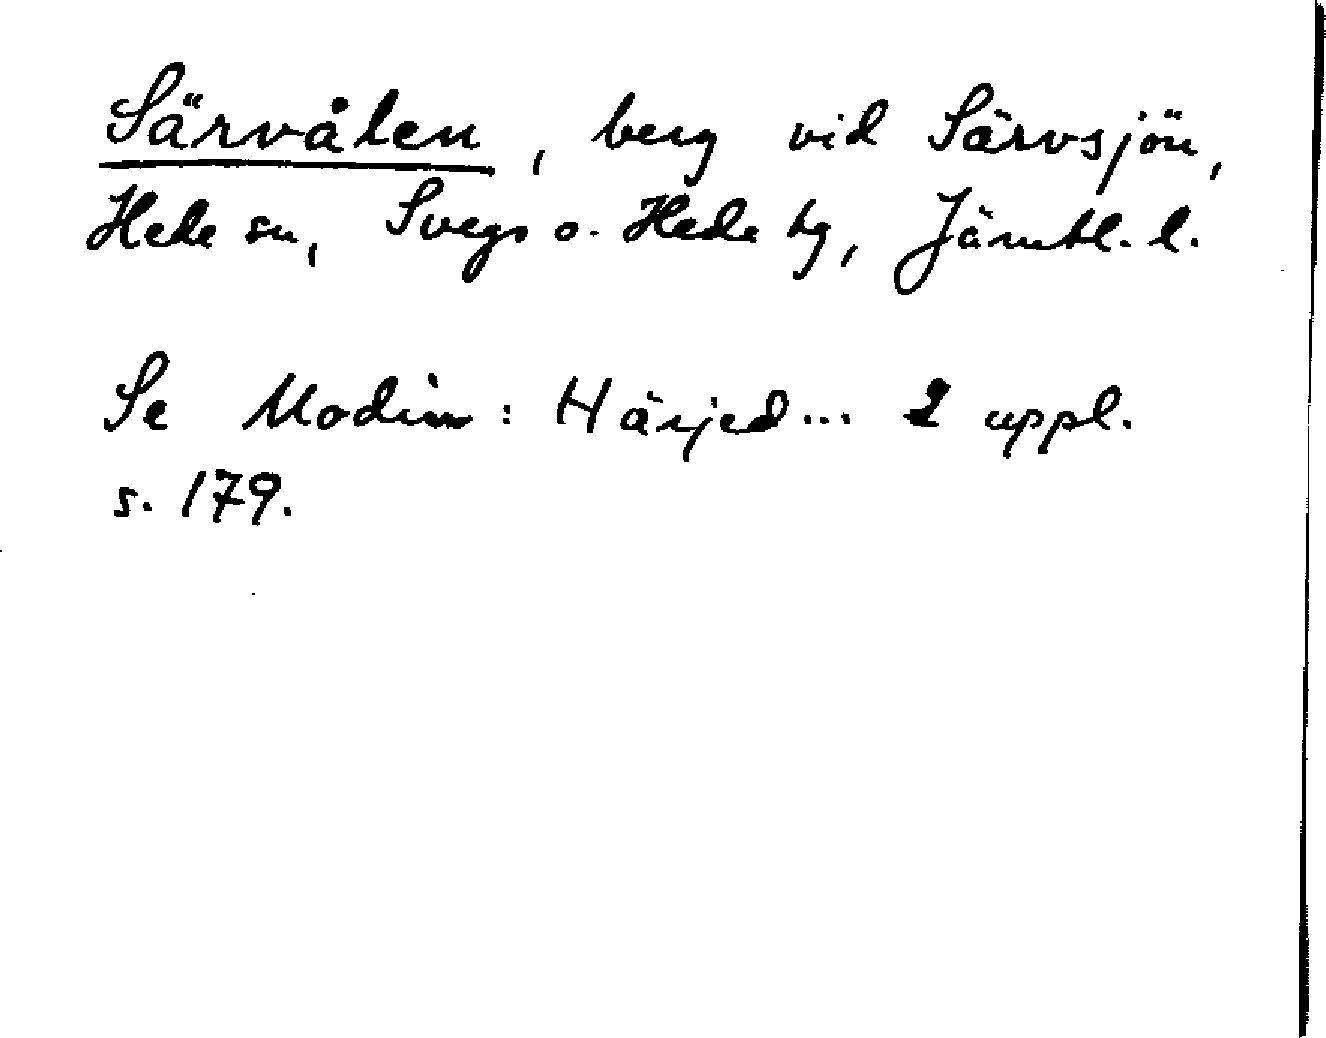 Särvålen, berg vid Särvsjön,
Hede sn, Svegs o. Hede tg, Jämtl. l.
Se Modin: Härjed... 2 uppl.
s. 179.